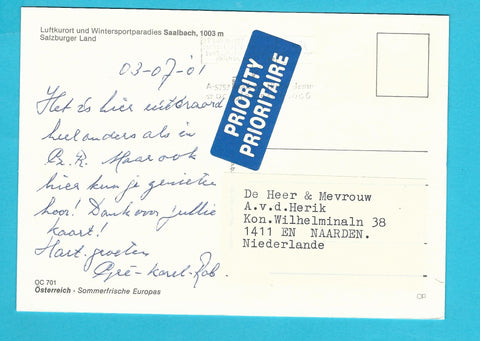 Luftkurort und Wintersportparadies Saalbach, 1003 m
Salzburger Land
03-07-'01
Het is hier uiteraard
heel anders als in
Maar ook
hier kun je genieten
hoor! Dank voor jullie
kaart!
Hart. groeten
Gré-Karel-Rob.
PRIORITY
PRIORITAIRE
De Heer & Mevrouw
A.v.d.Herik
Kon.Wilhelminaln 38
1411 EN NAARDEN.
Niederlande
OC 701
Österreich - Sommerfrische Europas